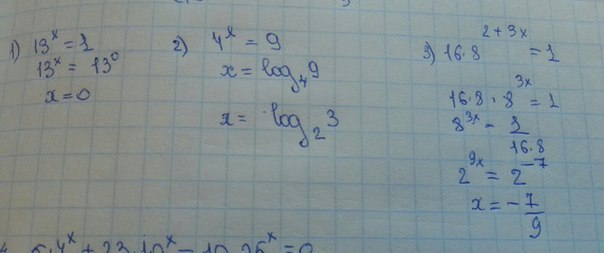 1) 13^x = 1
13^x = 13^0
x = 0
2) 4^x = 9
x = log_4 9
x = log_2 3
3) 16·8^{2+3x} = 1
16·8·8^{3x} = 1
8^{3x} = 1/(16·8)
2^{9x} = 2^{-7}
x = -7/9
6·4^x + 23·10^x - 10·25^x = 0